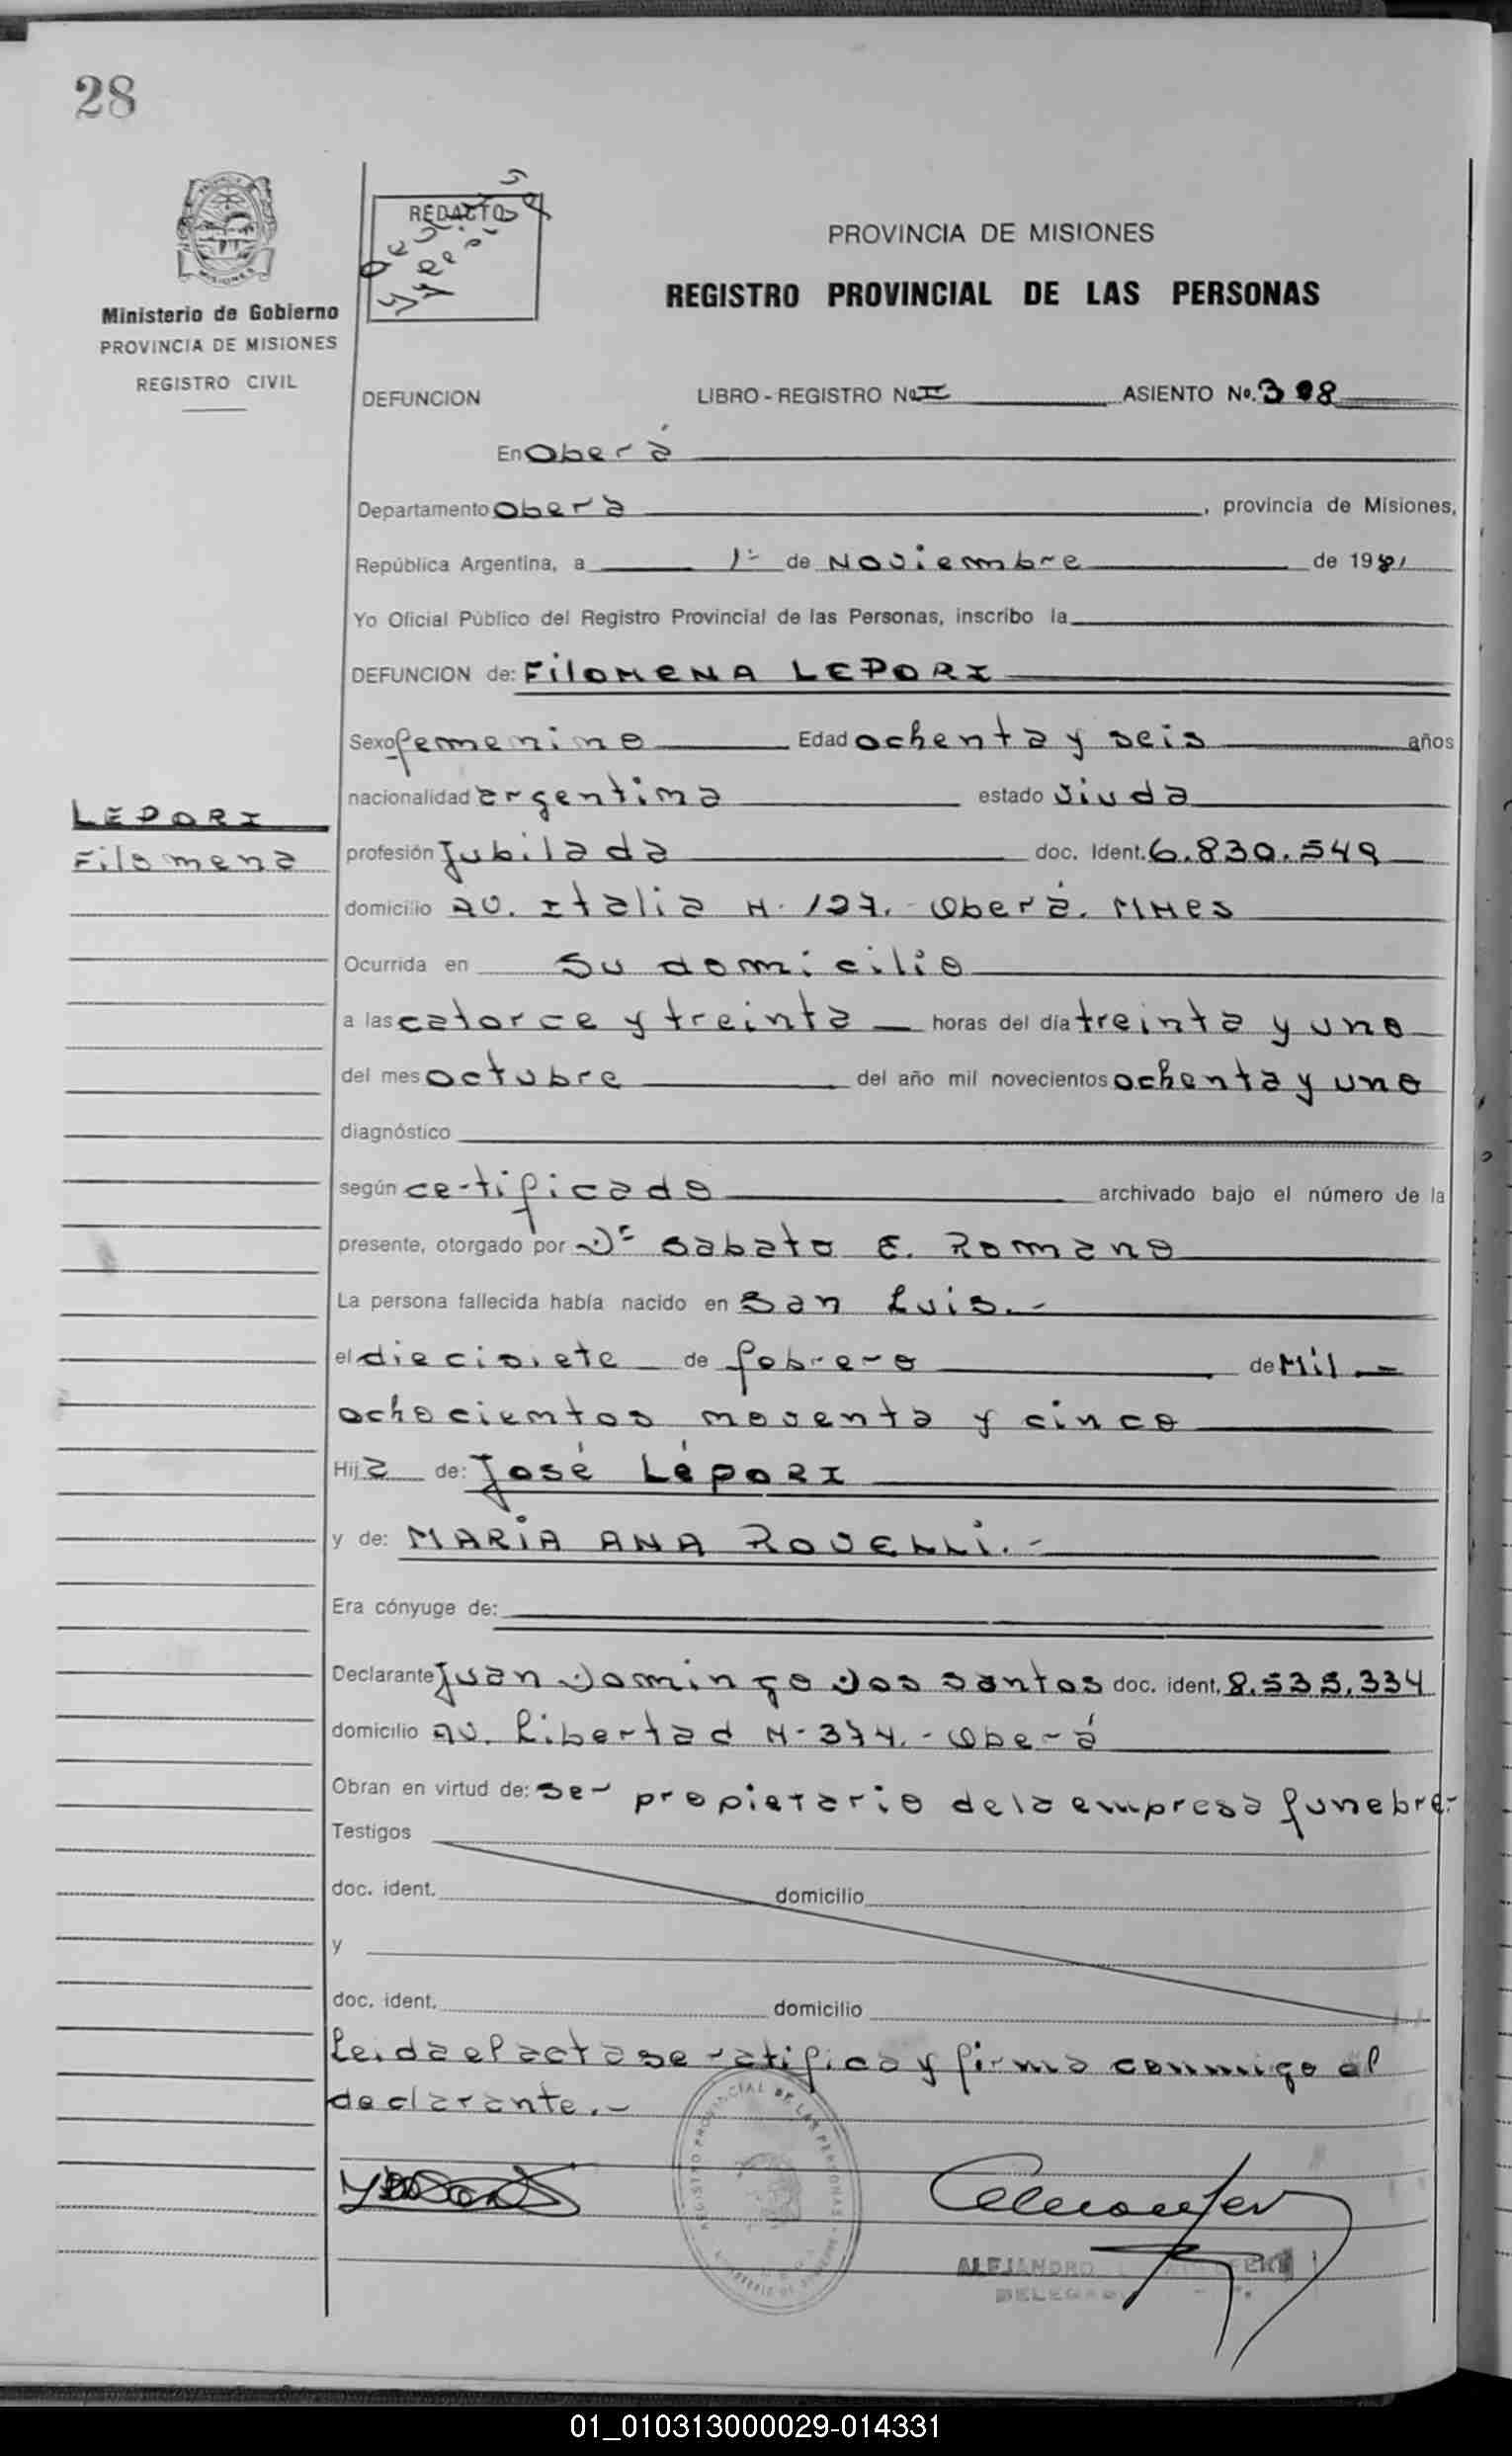 28
PROVINCIA DE MISIONES
REGISTRO PROVINCIAL DE LAS PERSONAS
Ministerio de Gobierno
PROVINCIA DE MISIONES
REGISTRO CIVIL
REDACTO
DEFUNCION LIBRO - REGISTRO No II ASIENTO No. 398
En Oberá
Departamento Oberà, provincia de Misiones,
República Argentina, a 1º de Noviembre de 1981
Yo Oficial Público del Registro Provincial de las Personas, inscribo la
DEFUNCION de: FiLOMENA LEPORI
Sexo femenino Edad ochenta y seis años
nacionalidad argentina estado viuda
LEPORI
Filomena
profesión Jubilada doc. Ident. 6.830.549
domicilio av. Italia N. 127.- Oberá. MNes
Ocurrida en Su domicilio
a las catorce y treinta horas del día treinta y uno
del mes octubre del año mil novecientos ochenta y uno
diagnóstico
según certificado archivado bajo el número de la
presente, otorgado por Dr Sabato E. Romano
La persona fallecida había nacido en San Luis.-
el diecisiete de febrero de Mil
ochocientos noventa y cinco
Hija de: José Lépori
y de: MARIA ANA ROVELLi.-
Era cónyuge de:
Declarante Juan Domingo Dos Santos doc. ident. 8.535.334
domicilio av. Libertad N- 374.- Oberá
Obran en virtud de: ser propietario de la empresa funebre.-
Testigos
doc. ident. domicilio
y
doc. ident. domicilio
Leida el acta se ratifica y firma conmigo el
declarante.-
REGISTRO PROVINCIAL DE LAS PERSONAS
ALEJANDRO
01_010313000029-014331